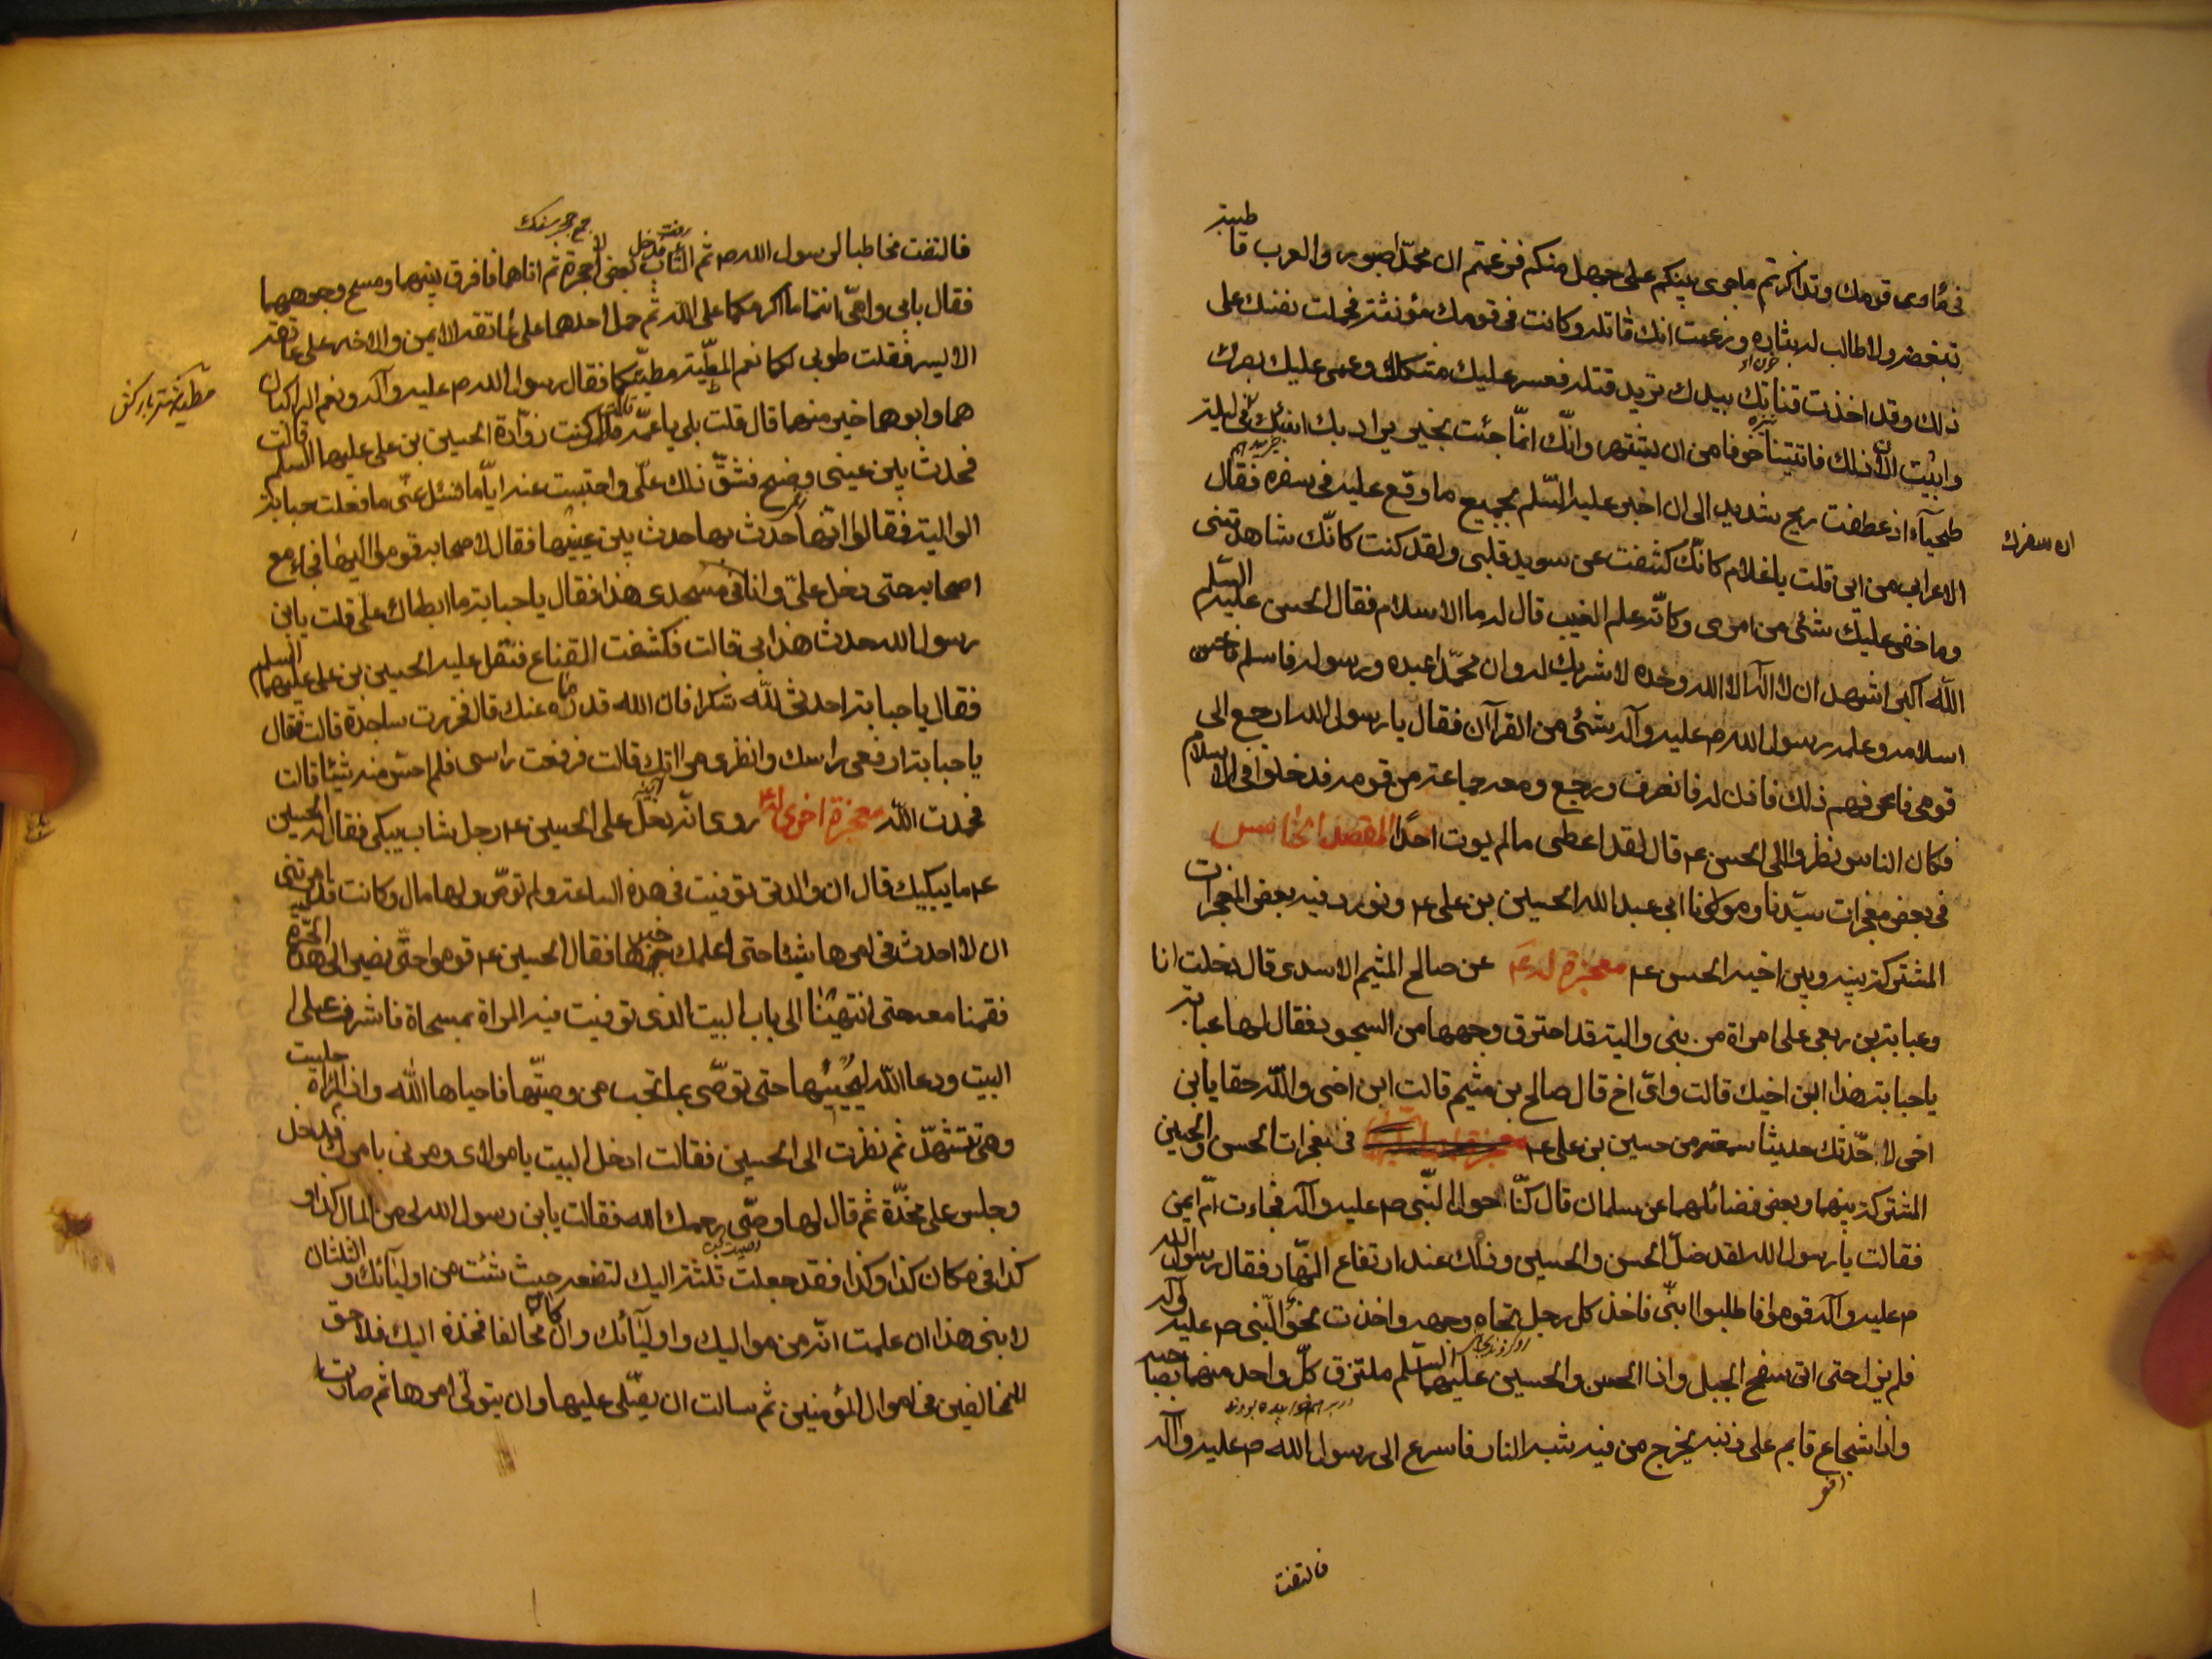 فى نادى قومك وتذاكرتم ماجرى بينكم على جهل منكم فزعمتم ان محمّدا صبور والعرب قاطبة
تبغضه ولا طالب له بثاره وزعمت انك قاتله وكانت فى قومك مؤنته فحملت نفسك على
ذلك وقد اخذت قناتك بيدك تريد قتله فعسر عليك مسلكك وعمى عليك بصرك
وابيت الا ذلك فاتيتنا خوفا من ان يشتهر وانّك انّما جئت بخير يراد بك انبئك عن سفرك خرجت فى ليلة
طخيآء اذ عطفت ريح شديد الى ان اخبر عليه السّلم بجميع ما وقع عليه فى سفره فقال
الاعرابى من اين قلت ياغلام كانّك كشفت عن سويد قلبى ولقد كنت كانّك شاهدتنى
وما خفى عليك شئ من امرى وكانّه علم الغيب قال له ما الاسلام فقال الحسن عليه السّلم
اللّه اكبر اشهد ان لا اله الا الله وحده لا شريك له وان محمّدا عبده ورسوله فاسلم فاحسن
اسلامه وعلمه رسول الله ص عليه وآله شئ من القرآن فقال يا رسول الله ارجع الى
قومى فاعرفهم ذلك فاذن له فانصرف ورجع ومعه جماعة من قومه فدخلوا فى الاسلام
فكان الناس نظروا الى الحسن ع قال لقد اعطى مالم يوت احدًا المقصد الخامس
فى بعض معجزات سيّدنا ومولانا ابى عبد الله الحسين بن على ع ونورد فيه بعض المعجزات
المشتركة بينه وبين اخيه الحسن ع معجزة له ع عن صالح الميثم الاسدى قال دخلت انا
وعباية بن ربعى على امراة من بنى والبة قد احترق وجهها من السجود فقال لها عباية
ياحبابة هذا ابن اخيك قالت واىّ اخ قال صالح بن ميثم قالت ابن اخى واللّه حقا يابن
اخى لا احدّثك حديثا سمعته من حسين بن على ع فى معجزات الحسن والحسين
المشتركة بينهما وبعض فضائلهما عن سلمان قال كنّا حول النّبى ص عليه وآله فجاءت امّ ايمن
فقالت يا رسول الله لقد ضلّ الحسن والحسين وذلك عند ارتفاع النّهار فقال رسول الله
ص عليه وآله قوموا فاطلبوا ابنّى فاخذ كل رجل تجاه وجهه واخذت نحو النّبى ص عليه وآله
فلم يزل حتى اتى سفح الجبل واذا الحسن والحسين عليهما السّلم ملتزق كلّ واحد منهما بصاحبه
واذا شجاع قايم على ذنبه يخرج من فيه شبه النار فاسرع الى رسول الله ص عليه وآله
فالتفت
فالتفت مخاطبا لرسول الله ص ثم انساب فدخل بعض الاجحرة ثم اتاهما فافرق بينهما ومسح وجوههما
فقال بابى وامّى انتما ما اكرمكما على اللّه ثم حمل احدهما على عاتقه الايمن والاخر على عاتقه
الايسر فقلت طوبى لكما نعم المطيّة مطيتكما فقال رسول الله ص عليه وآله ونعم الراكبان
هما وابوهما خير منهما قال قلت بلى ياعمّه قالت كنت زوّارة الحسين بن على عليهما السلم قالت
فحدث بين عينى وضح فشقّ ذلك علّى واحتبست عنه ايّاما فسئل عنّى ما فعلت حبابة
الوالبية فقالوا انّها حدث بها حدث بين عينيها فقال لاصحابه قوموا اليها فجاء مع
اصحابه حتى دخل علىّ وانا فى مسجدى هذا فقال ياحبابة ما ابطاك على قلت يابن
رسول الله حدث هذا بى قالت فكشفت القناع فتفل عليه الحسين بن على عليهما السلم
فقال ياحبابة احدثى للّه شكرا فان الله قد دراه عنك قال فخررت ساجدة قالت فقال
ياحبابة ارفعى راسك وانظرى مراتك قالت فرفعت راسى فلم احس منه شيئا قالت
فحمدت اللّه معجزة اخرى له روى انّه دخل على الحسين ع رجل شاب يبكى فقال له الحسين
ع ما يبكيك قال ان والدتى توفيت فى هذه الساعة ولم توصّ ولها مال وكانت قد امرتنى
ان لا احدث فى امرها شيئا حتى اعلمك خبرها فقال الحسين ع قوموا حتّى نصير الى هذه الحرّة
فقمنا معه حتى انتهينا الى باب البيت الذى توفيت فيه المراة بمسجاة فاشرف على
البيت ودعا اللّه ليحييها حتى توصّى بما تحب من وصيّتها فاحياها اللّه واذا المراة جلست
وهى تتشهّد ثم نظرت الى الحسين فقالت ادخل البيت يا مولاى ومرنى بامرك فدخل
وجلس على مخدّة ثم قال لها وصّى يرحمك الله فقالت يابن رسول الله لى من المال كذا و
كذا فى مكان كذا وكذا فقد جعلت ثلثه اليك لتضعه حيث شئت من اوليآئك والثلثان
لابنى هذا ان علمت انّه من مواليك واوليآئك وان كان مخالفا فخذه اليك فلا حق
للمخالفين فى اموال المؤمنين ثم سالت ان يصّلى عليها وان يتولّى امرها ثم صارت